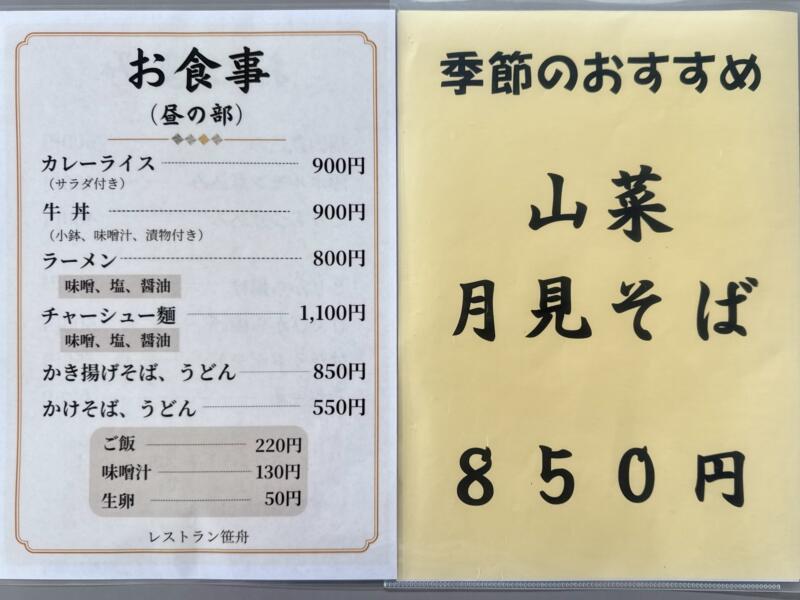 お食事
（昼の部）
カレーライス 900円
（サラダ付き）
牛丼 900円
（小鉢、味噌汁、漬物付き）
ラーメン 800円
味噌、塩、醤油
チャーシュー麺 1,100円
味噌、塩、醤油
かき揚げそば、うどん 850円
かけそば、うどん 550円
ご飯 220円
味噌汁 130円
生卵 50円
レストラン笹舟
季節のおすすめ
山菜
月見そば
８５０円